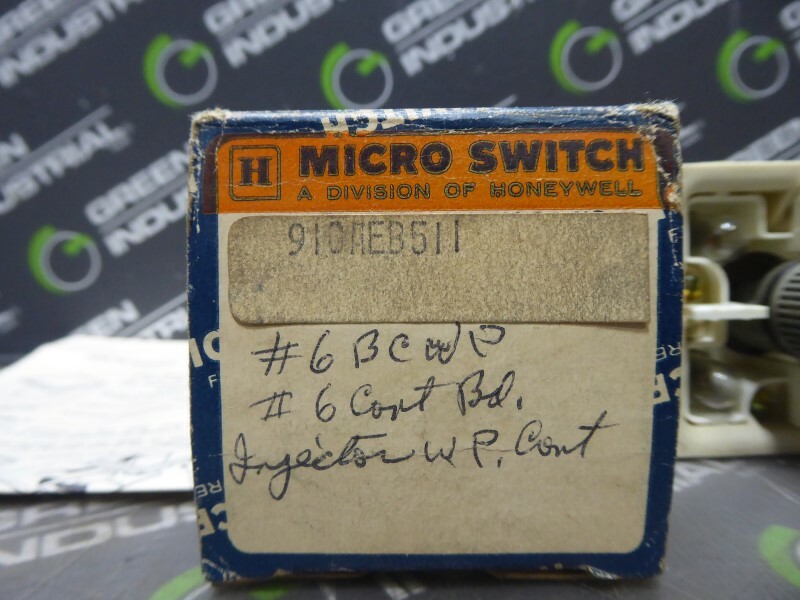 GREEN
INDUSTRIAL
H MICRO SWITCH
A DIVISION OF HONEYWELL
910MEB511
#6 BCWP
#6 Cont Bd.
Injector W.P. Cont